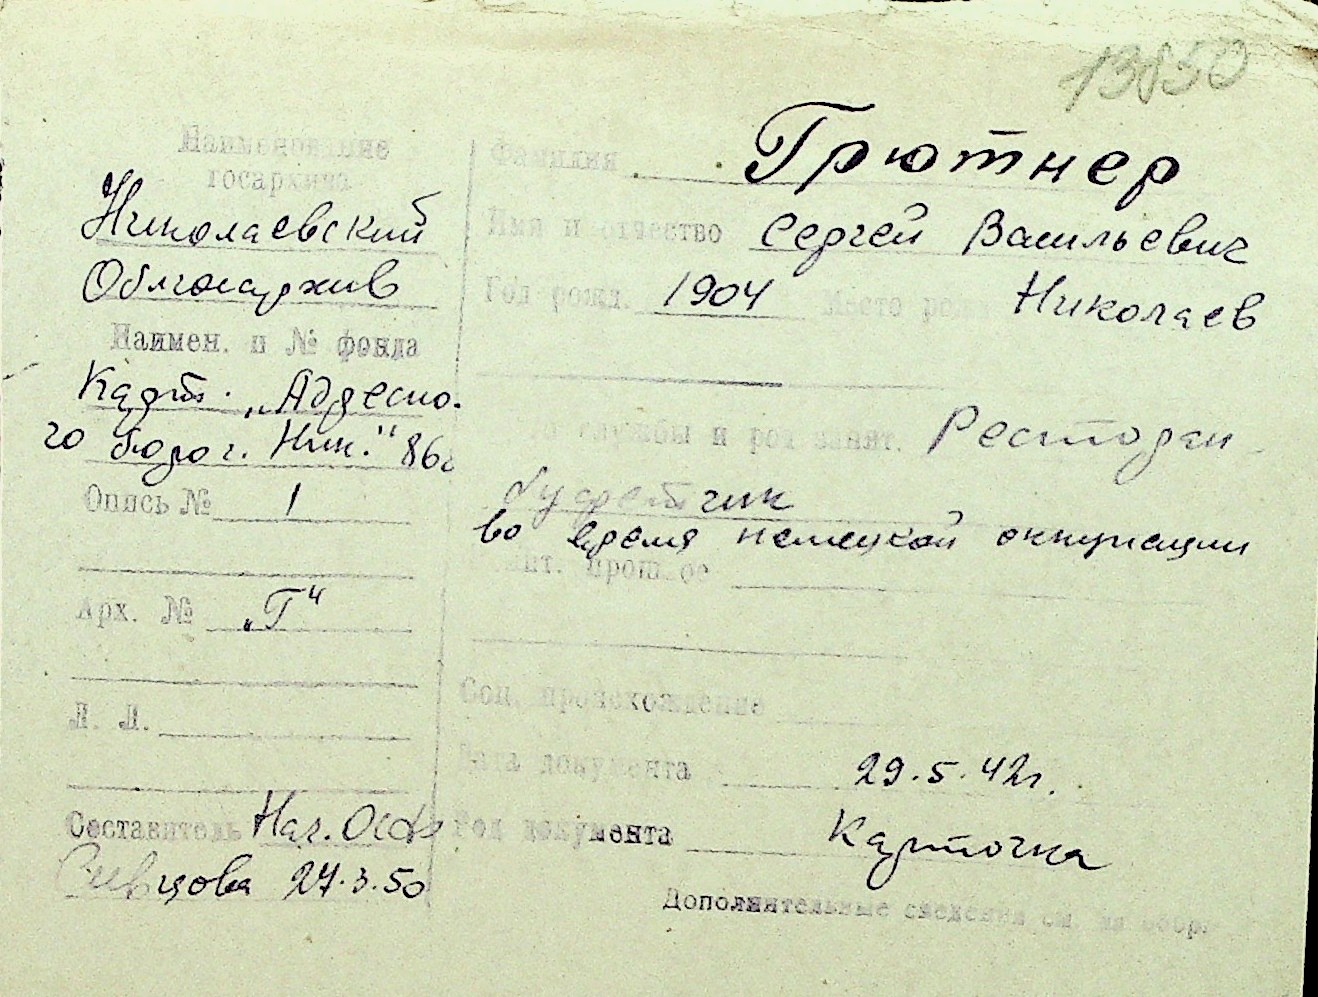 13850
Наименование
госархива
Николаевский
Облгосархив
Наимен. и № фонда
Карт. „Адресно-
го бюро г. Ник." 86г
Опись № 1
Арх. № „Г"
Л. Л.
Составитель Нач.
27.3.50
Фамилия Грютнер
Имя и отчество Сергей Васильевич
Год рожд. 1904 Место рожд. Николаев
службы и род занят. Ресторан
буфетчик
во время немецкой оккупации
прошлое
Соц. происхождение
Дата документа 29.5.42г.
Род документа Карточка
Дополнительные сведения см. на обор.